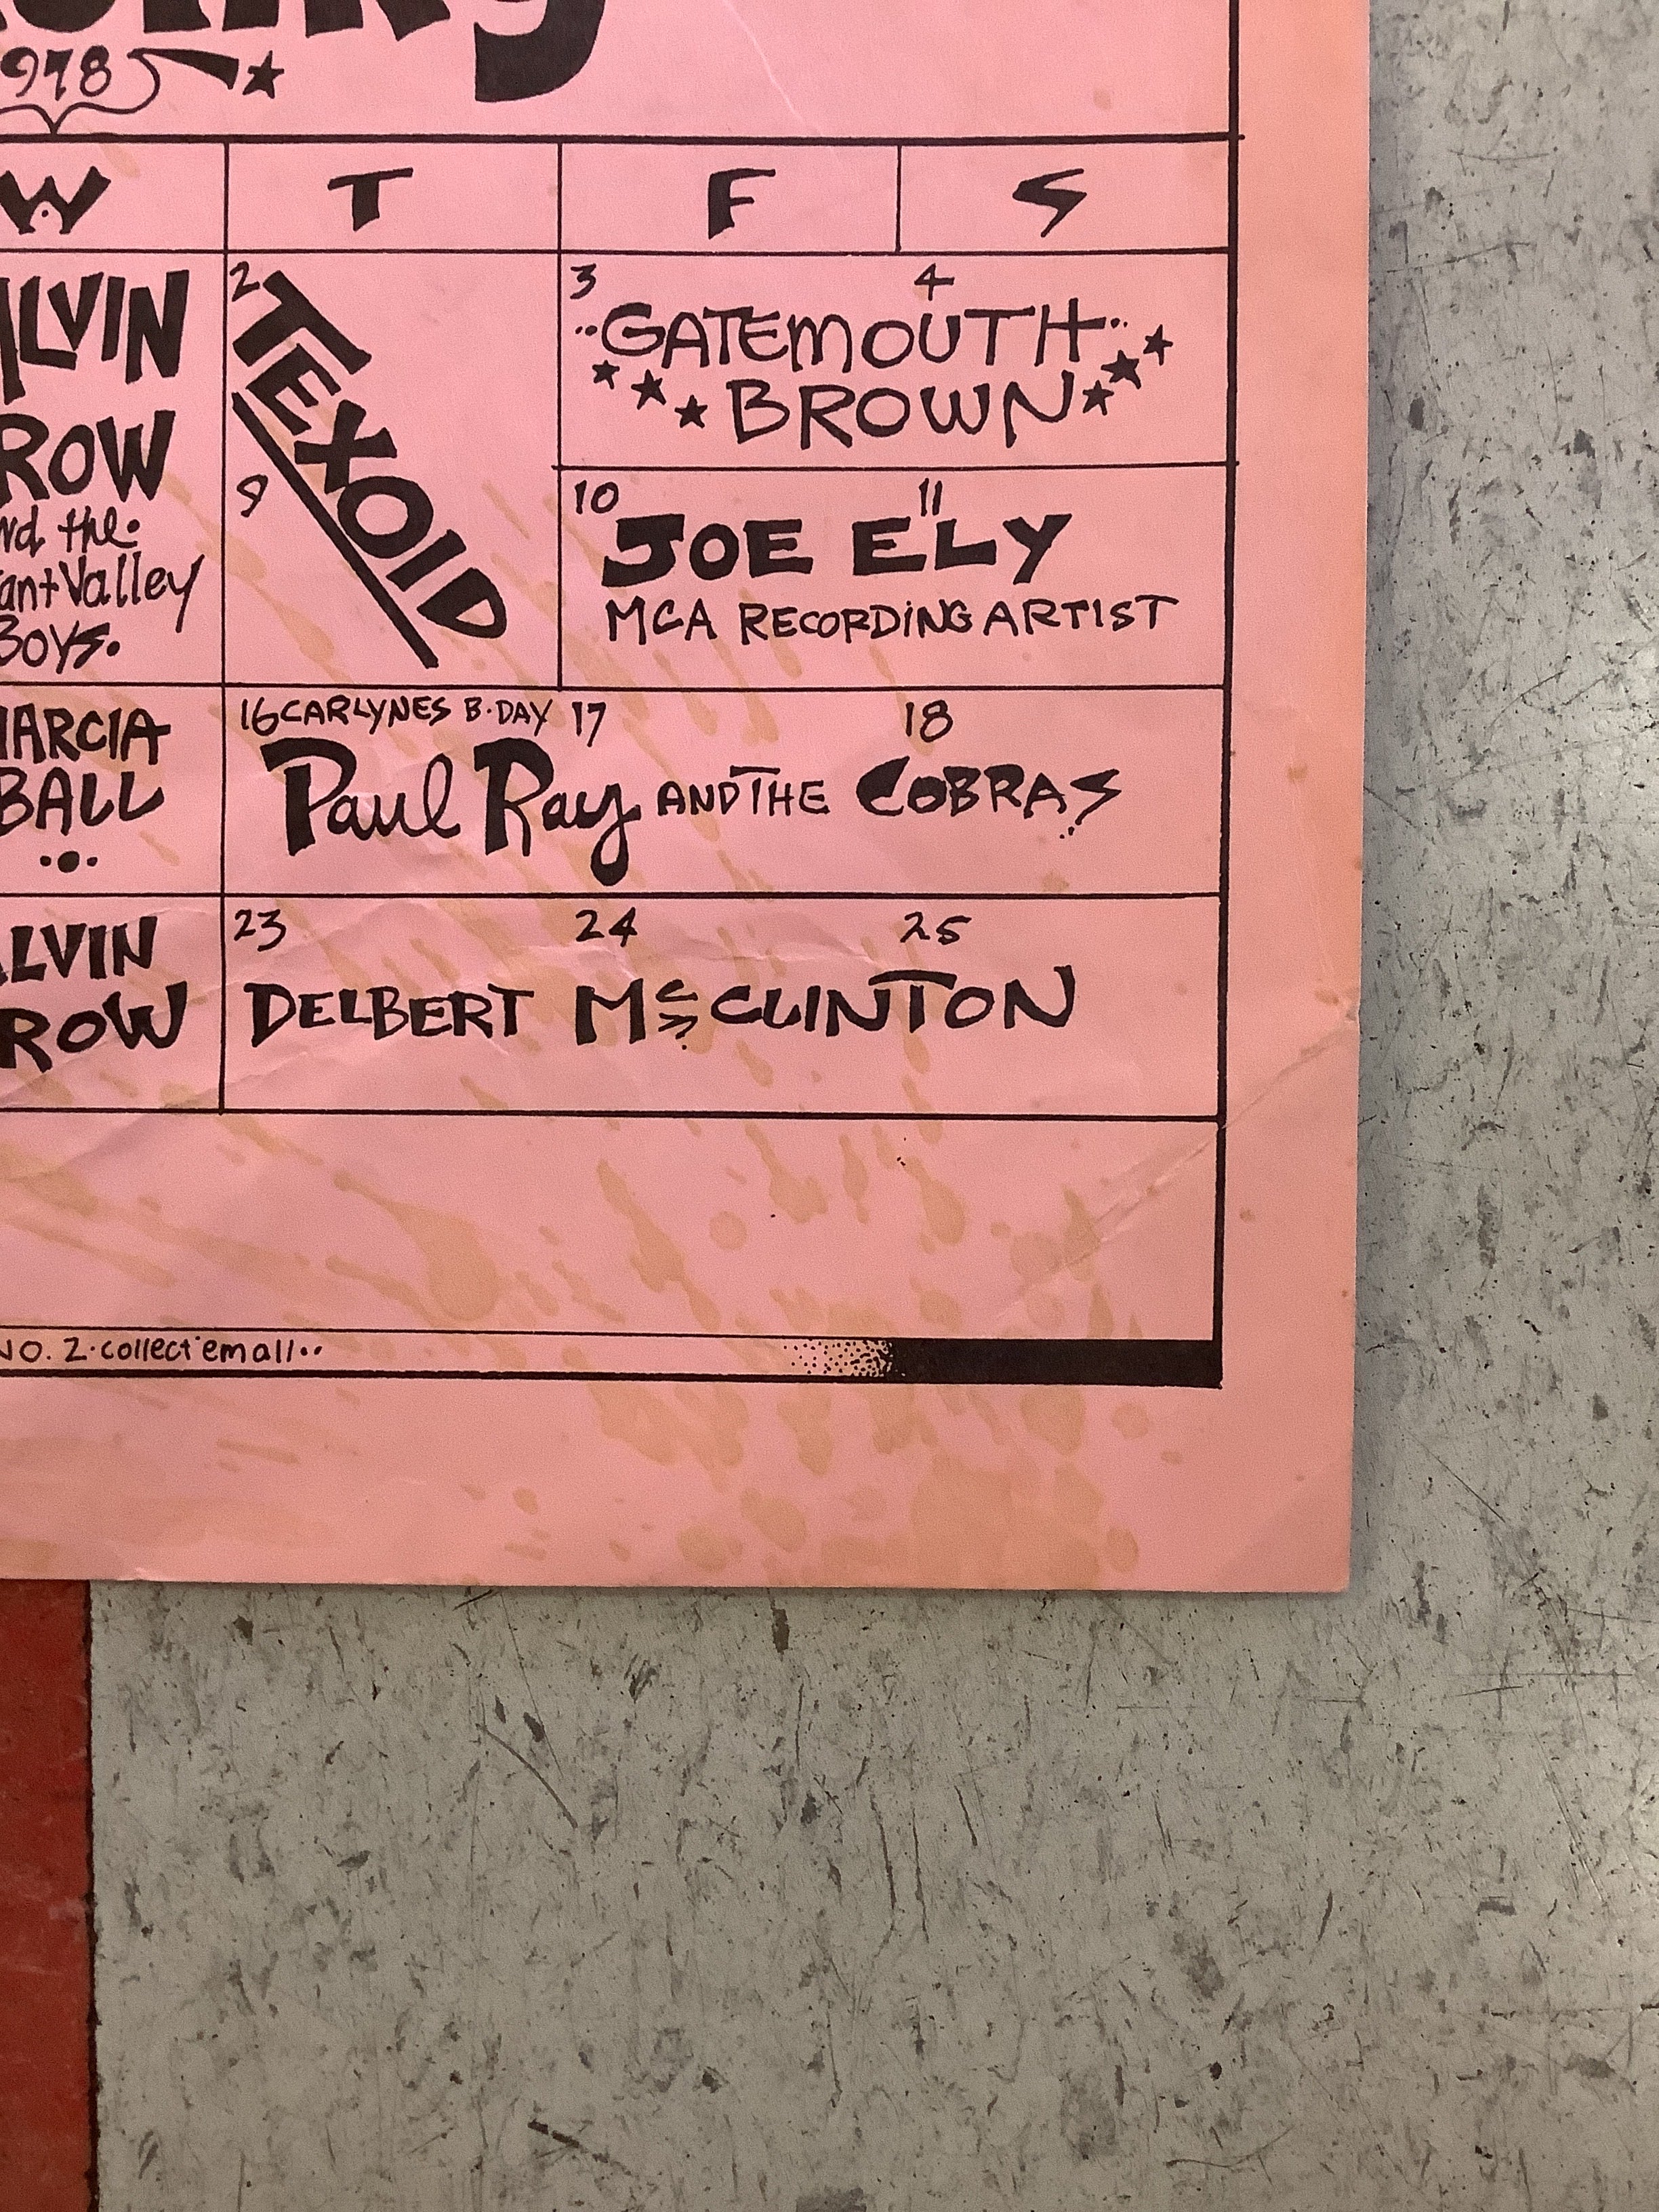 978
W T F S
ALVIN
ROW
and the
ant Valley
Boys.
2
9
TEXOID
3 4
GATEMOUTH
BROWN
10 11
JOE ELY
MCA RECORDING ARTIST
MARCIA
BALL
16 CARLYNES B·DAY 17 18
Paul Ray AND THE COBRAS
ALVIN
ROW
23 24 25
DELBERT McCLINTON
NO. 2·collect'em all··